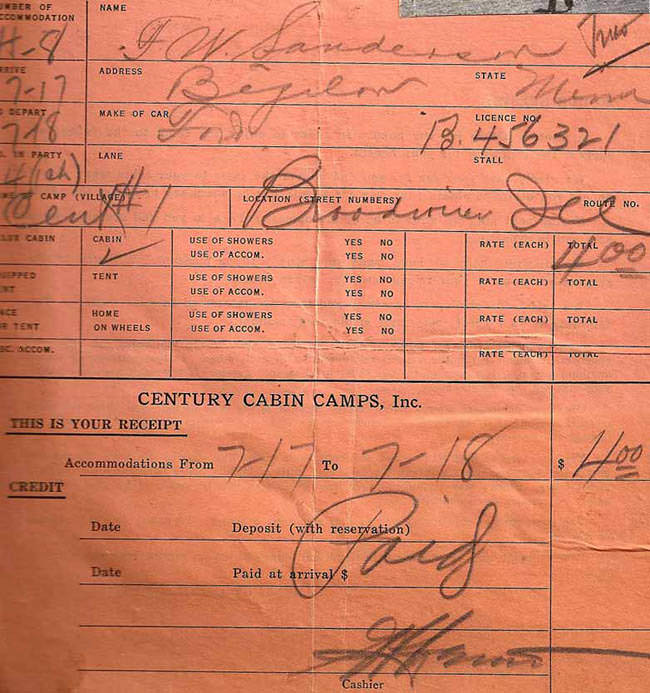 NUMBER OF ACCOMMODATION NAME
H-8 F W. Sanderson
ARRIVE ADDRESS STATE
7-17 Bigelow Minn
TO DEPART MAKE OF CAR LICENCE NO.
7-18 Ford. B. 456321
NO. IN PARTY LANE STALL
4 (1ch)
CAMP (VILLAGE) LOCATION (STREET NUMBERS) ROUTE NO.
Cent #1 Broadview Ill
CABIN CABIN USE OF SHOWERS YES NO RATE (EACH) TOTAL
USE OF ACCOM. YES NO 4 00
EQUIPPED TENT TENT USE OF SHOWERS YES NO RATE (EACH) TOTAL
USE OF ACCOM. YES NO
HOME USE OF SHOWERS YES NO RATE (EACH) TOTAL
TENT ON WHEELS USE OF ACCOM. YES NO
ACCOM. RATE (EACH) TOTAL
CENTURY CABIN CAMPS, Inc.
THIS IS YOUR RECEIPT
Accommodations From 7-17 To 7-18 $ 4 00
CREDIT
Date Deposit (with reservation)
Paid
Date Paid at arrival $
Cashier